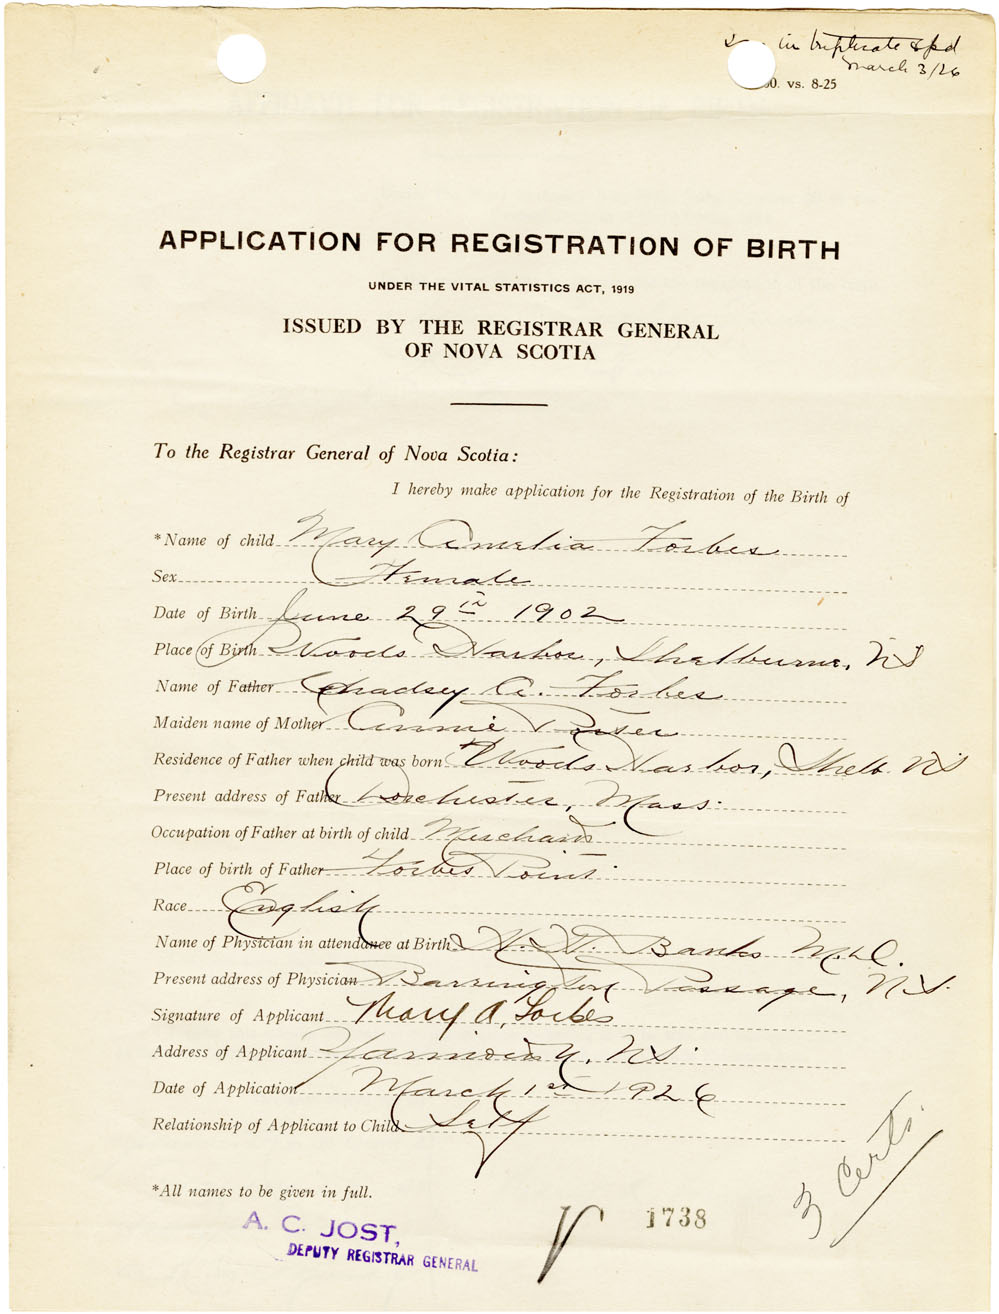 in triplicate & pd
March 3/26
00. vs. 8-25
APPLICATION FOR REGISTRATION OF BIRTH
UNDER THE VITAL STATISTICS ACT, 1919
ISSUED BY THE REGISTRAR GENERAL
OF NOVA SCOTIA
To the Registrar General of Nova Scotia:
I hereby make application for the Registration of the Birth of
*Name of child Mary Amelia Forbes
Sex Female
Date of Birth June 29th 1902
Place of Birth Woods Harbor, Shelburne, NS
Name of Father Chadsey A. Forbes
Maiden name of Mother Annie
Residence of Father when child was born Woods Harbor, Shelb. NS
Present address of Father Dorchester, Mass.
Occupation of Father at birth of child Merchant
Place of birth of Father Forbes Point
Race English
Name of Physician in attendance at Birth Banks M.D.
Present address of Physician Barrington Passage, N.S.
Signature of Applicant Mary A. Forbes
Address of Applicant Yarmouth, NS.
Date of Application March 1st 1926
Relationship of Applicant to Child Self
3 Certs.
*All names to be given in full.
1738
A. C. JOST,
DEPUTY REGISTRAR GENERAL